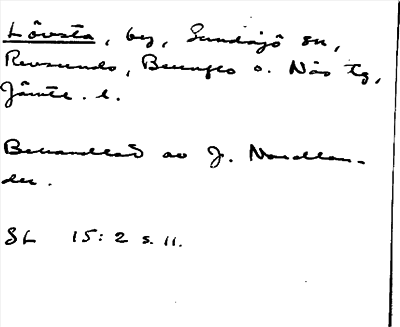 Lövsta, by, Sundsjö sn,
Revsunds, Brunflo o. Näs tg,
Jämtl. l.
Behandlad av J. Nordlan-
der.
SL 15:2 s. 11.